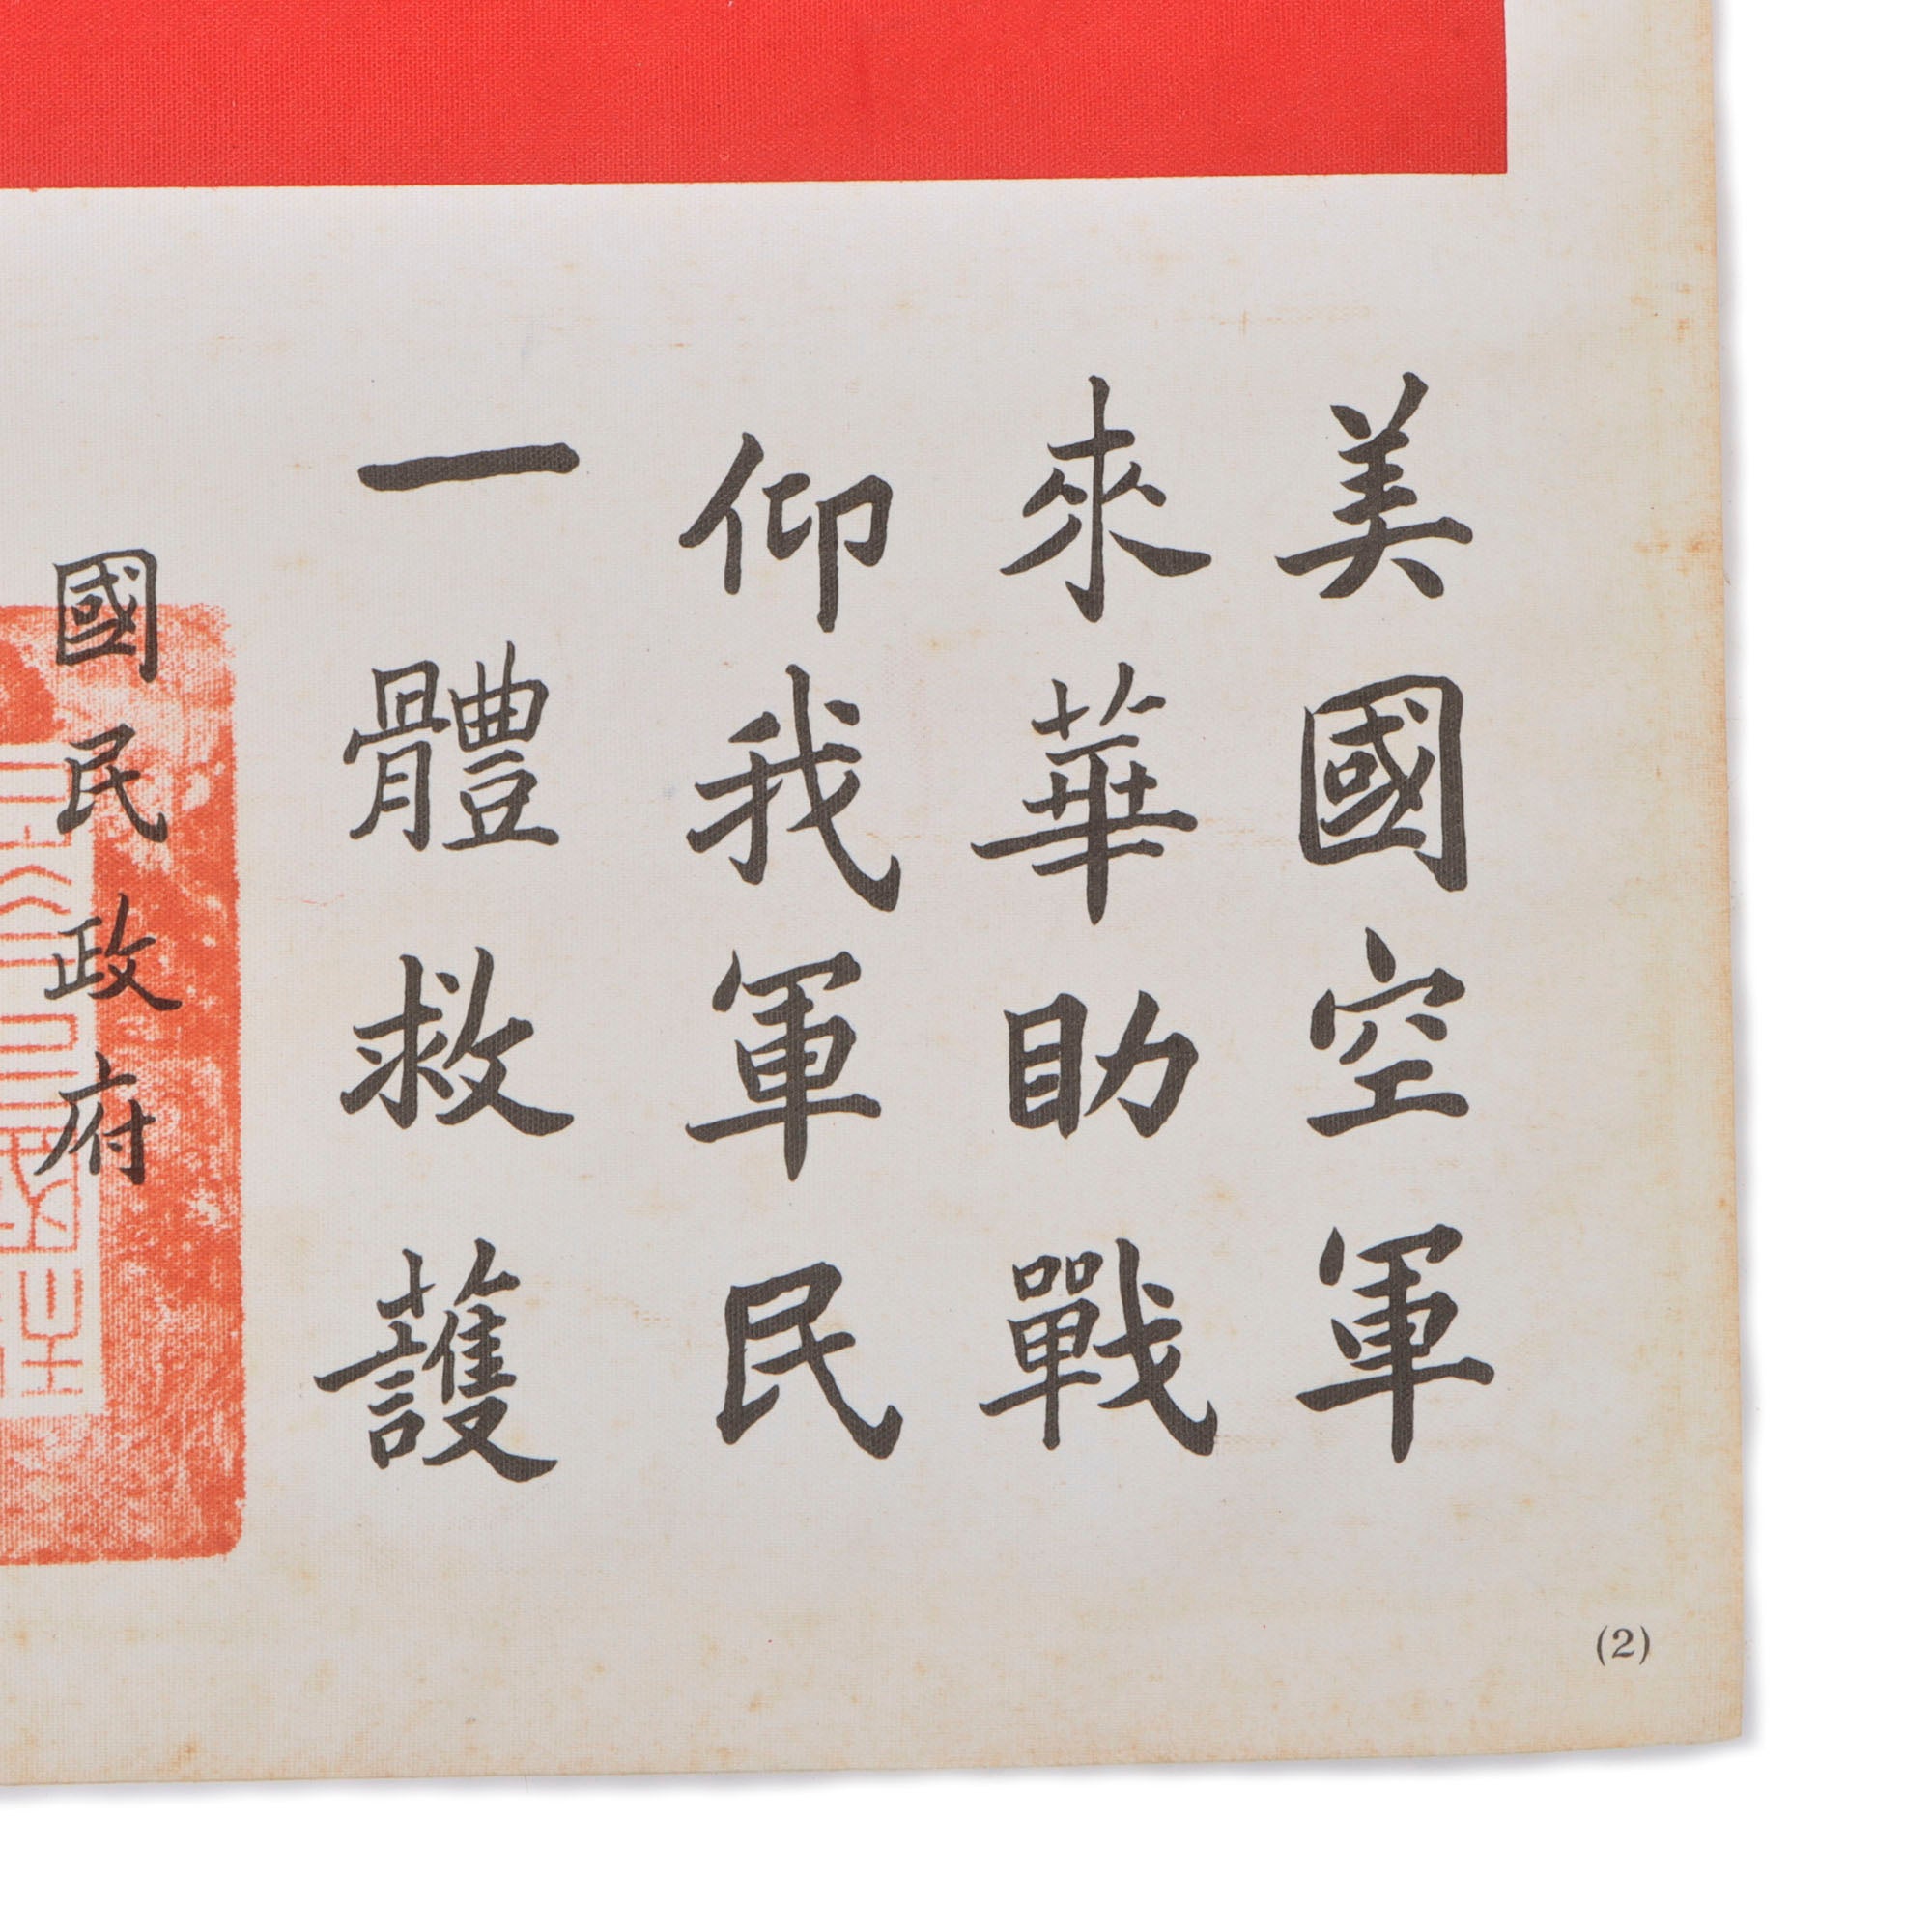 美國空軍
來華助戰
仰我軍民
一體救護
國民政府
(2)